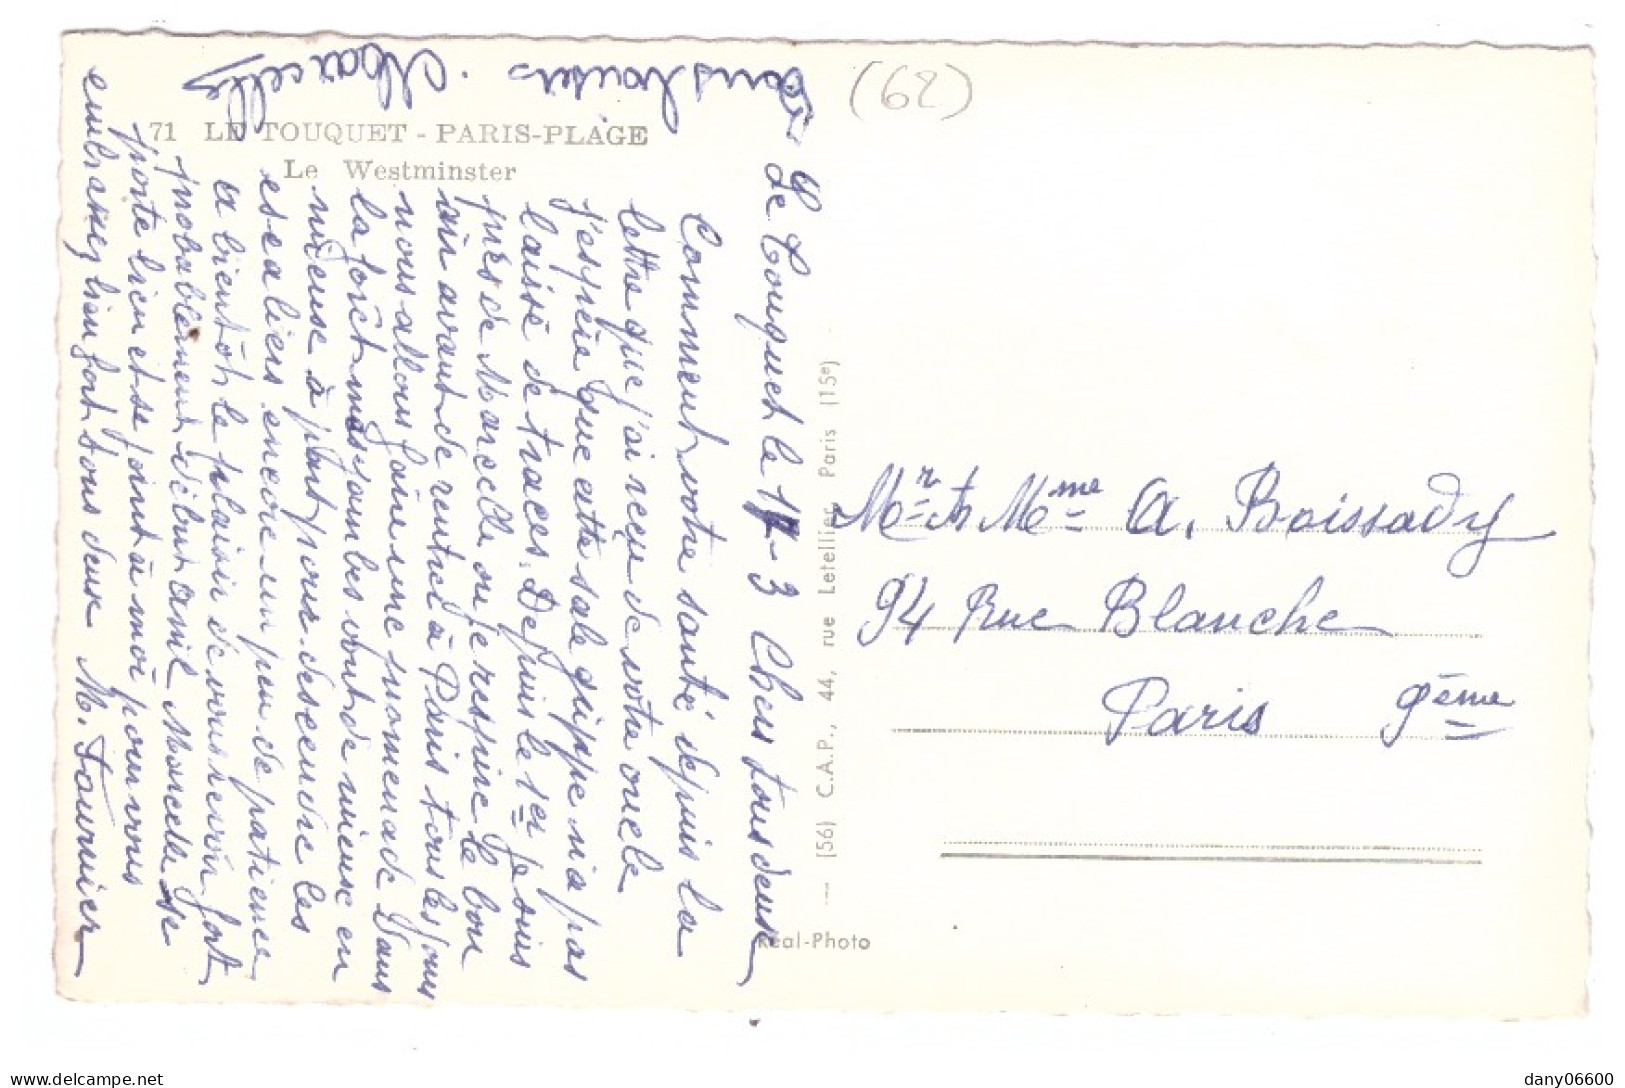 (62)
71 LE TOUQUET - PARIS-PLAGE
Le Westminster
Le Touquet le 17-3 Chers tous deux
Comment votre santé depuis la
lettre que j'ai reçu de votre oncle
j'espère que cette sale grippe n'a pas
laissé de traces. Depuis le 1er je suis
près de Marcelle ou je respire le bon
air avant de rentrer à Paris tous les jours
nous allons faire une promenade dans
la forêt mes jambes vont de mieux en
mieux à part pour descendre les
escaliers encore un peu de patience
a bientôt le plaisir de vous revoir fort
probablement début avril Marcelle se
porte bien et se joint à moi pour vous
embrasser bien fort tous deux M. Fournier
Bons baisers. Marcelle
(56) C.A.P., 44, rue Letellier, Paris (15e)
Réal-Photo
Mr et Mme A. Boissady
94 Rue Blanche
Paris 9ème
delcampe.net
dany06600